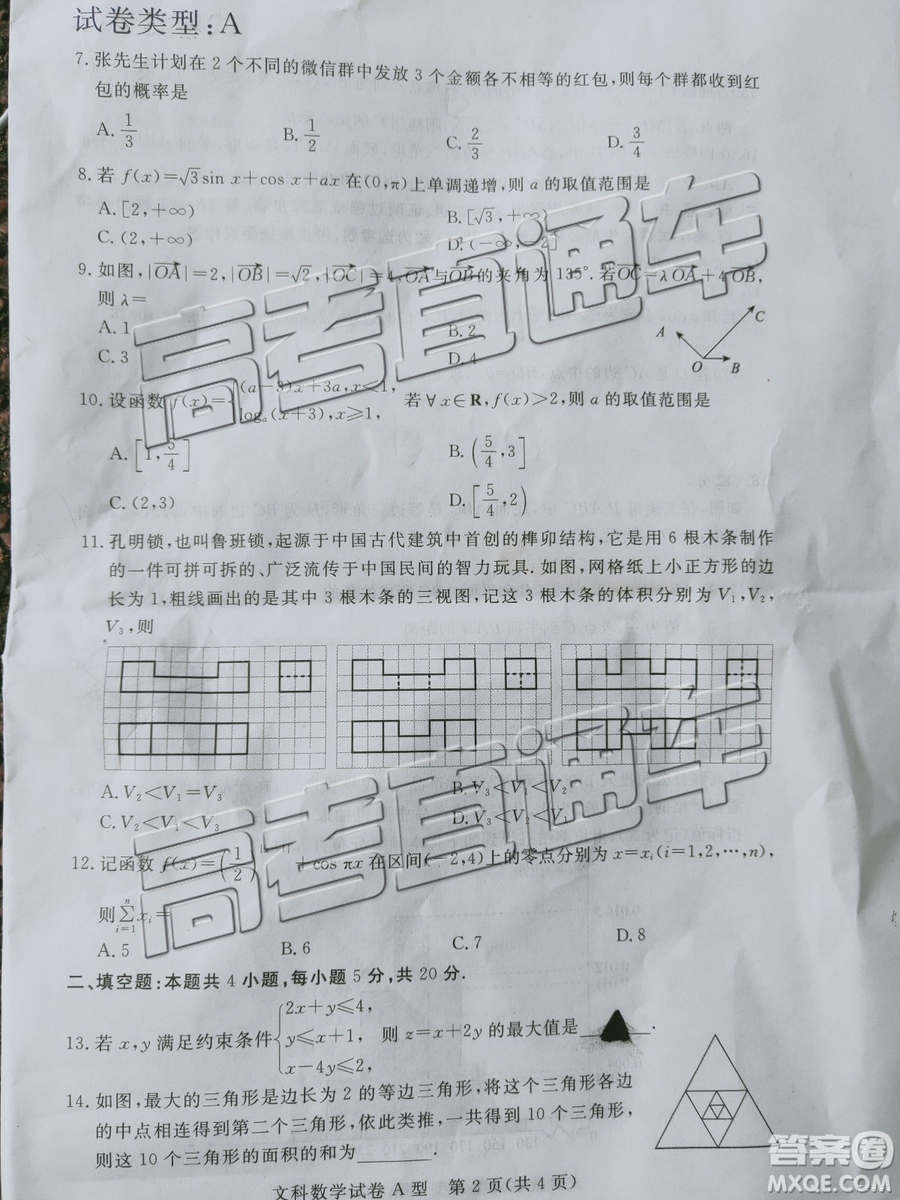 试卷类型:A
7.张先生计划在2个不同的微信群中发放3个金额各不相等的红包,则每个群都收到红
包的概率是
A.1/3 B.1/2 C.2/3 D.3/4
8.若 f(x)=√3sin x+cos x+ax 在(0,π)上单调递增,则a的取值范围是
A.[2,+∞) B.[√3,+∞)
C.(2,+∞) D.(-∞,-2]
9.如图,|OA|=2,|OB|=√2,|OC|=4,OA与OB的夹角为135°.若OC=λOA+4OB,
则λ=
A.1 B.2
C.3 D.4
A
C
O
B
10.设函数 f(x)={(a-3)x+3a,x<1,
logₐ(x+3),x≥1, 若∀x∈R,f(x)>2,则a的取值范围是
A.[1,5/4] B.(5/4,3]
C.(2,3) D.[5/4,2)
11.孔明锁,也叫鲁班锁,起源于中国古代建筑中首创的榫卯结构,它是用6根木条制作
的一件可拼可拆的、广泛流传于中国民间的智力玩具.如图,网格纸上小正方形的边
长为1,粗线画出的是其中3根木条的三视图,记这3根木条的体积分别为V₁,V₂,
V₃,则
A.V₂<V₁=V₃ B.V₃<V₁<V₂
C.V₂<V₁<V₃ D.V₃<V₂<V₁
12.记函数 f(x)=(1/2) + cos πx在区间(-2,4)上的零点分别为x=xᵢ(i=1,2,…,n),
则∑ⁿᵢ₌₁xᵢ=
A.5 B.6 C.7 D.8
二、填空题:本题共4小题,每小题5分,共20分.
13.若x,y满足约束条件{2x+y≤4,
y≤x+1,
x-4y≤2, 则z=x+2y的最大值是 .
14.如图,最大的三角形是边长为2的等边三角形,将这个三角形各边
的中点相连得到第二个三角形,依此类推,一共得到10个三角形,
则这10个三角形的面积的和为______.
文科数学试卷A型 第2页(共4页)
高考直通车
高考直通车
答案圈
MXQE.COM